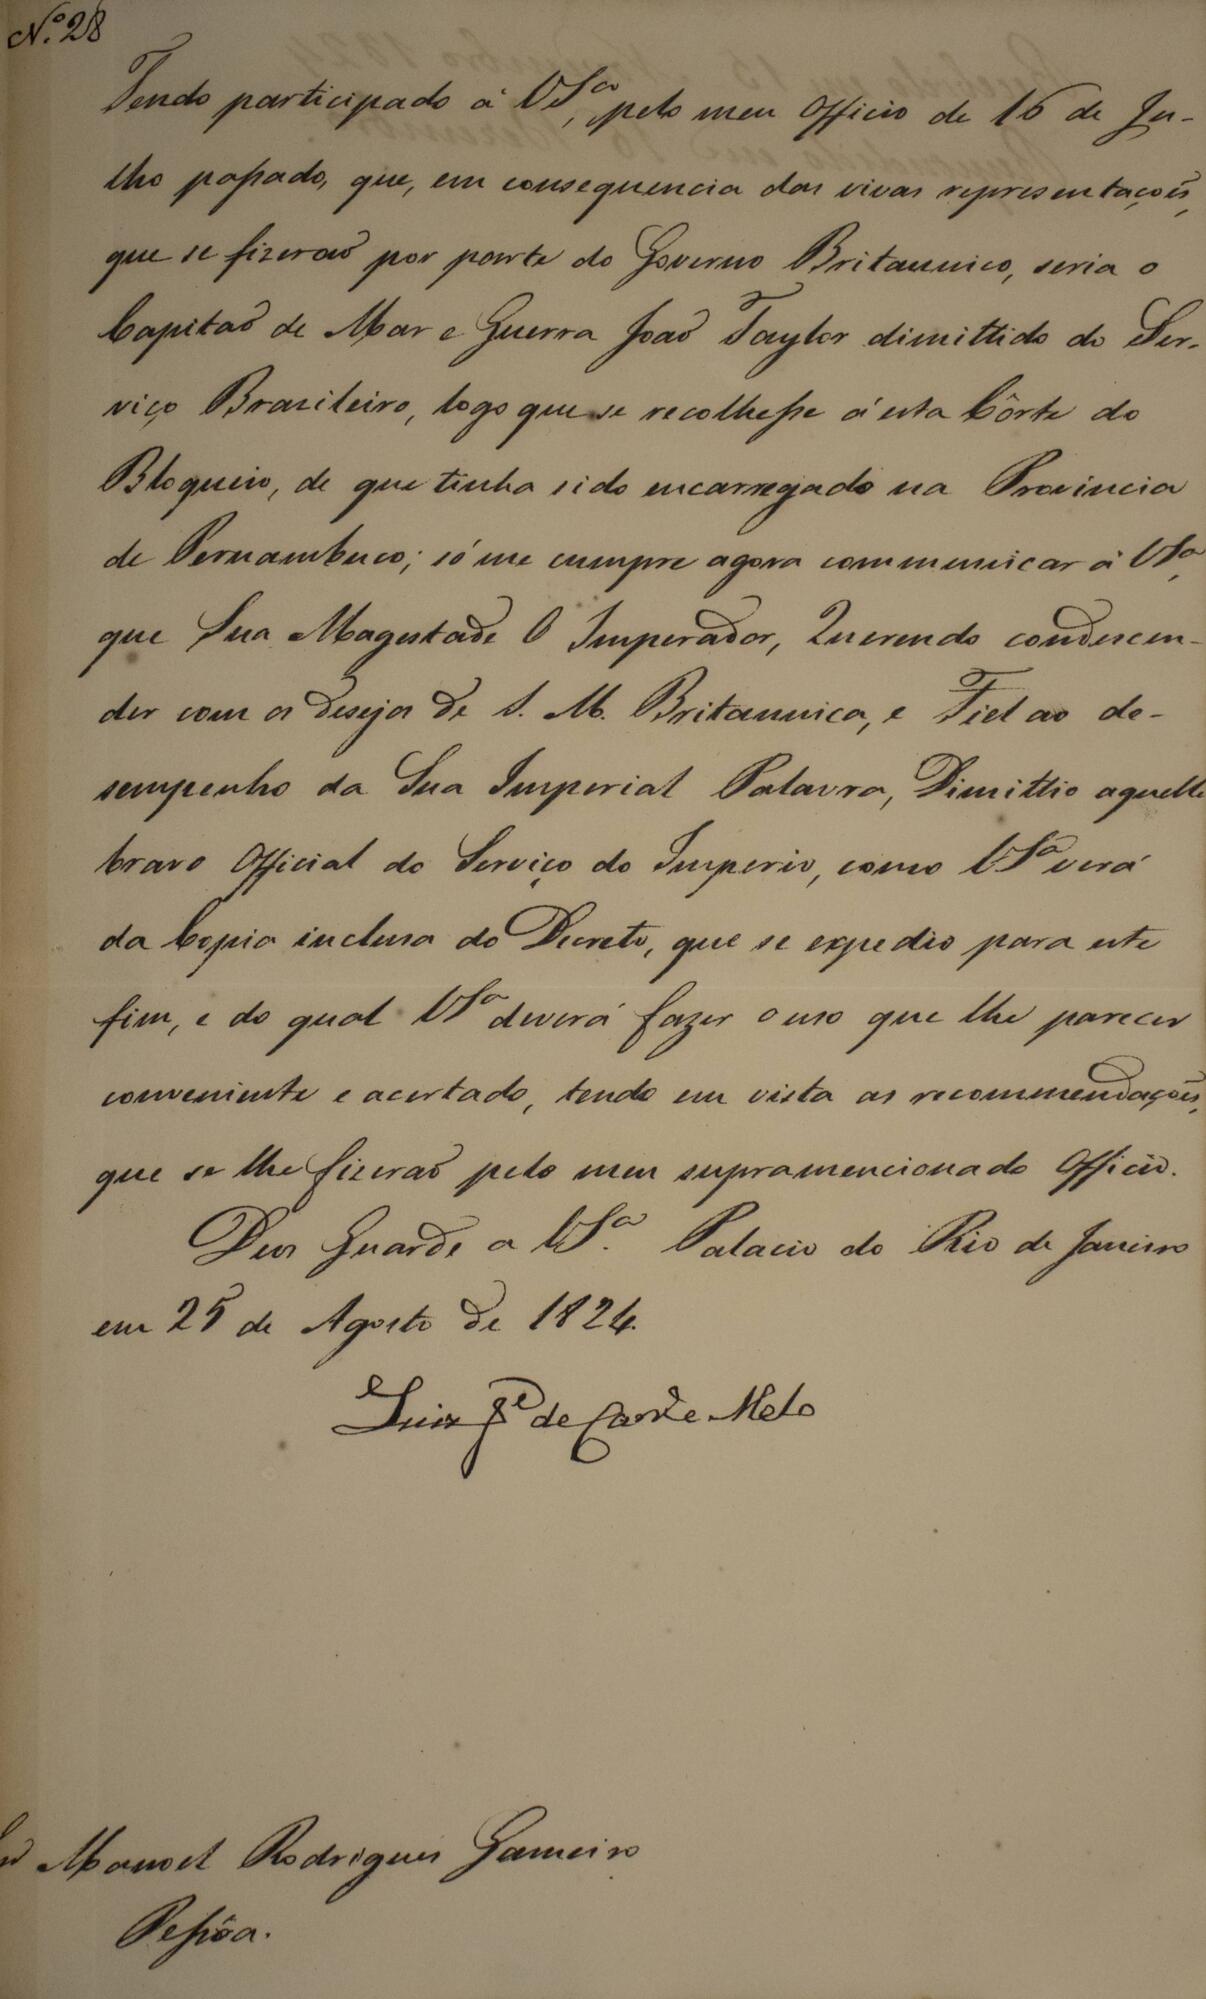 Nº 28
Tendo participado á VSª, pelo meu Officio de 16 de Ju-
lho passado, que, em consequencia das vivas representações,
que se fizeraõ por parte do Governo Britannico, seria o
Capitaõ de Mar e Guerra Joaõ Taylor dimittido do Ser-
viço Brasileiro, logo que se recolhesse á esta Côrte do
Bloqueio, de que tinha sido encarregado na Provincia
de Pernambuco; só me cumpre agora communicar á VSª,
que Sua Magestade O Imperador, Querendo condescen-
der com os desejos de S. M. Britannica, e Fiel ao de-
sempenho da Sua Imperial Palavra, Dimittio aquelle
bravo Official do Serviço do Imperio, como VSª verá
da Copia inclusa do Decreto, que se expedio para este
fim, e do qual VSª deverá fazer o uso que lhe parecer
conveniente e acertado, tendo em vista as recommendações,
que se lhe fizeraõ pelo meu supramencionado Officio.
Deos Guarde a VSª. Palacio do Rio de Janeiro
em 25 de Agosto de 1824.
Luiz Jé de Carvº e Mello
Manoel Rodrigues Gameiro
Pessôa.